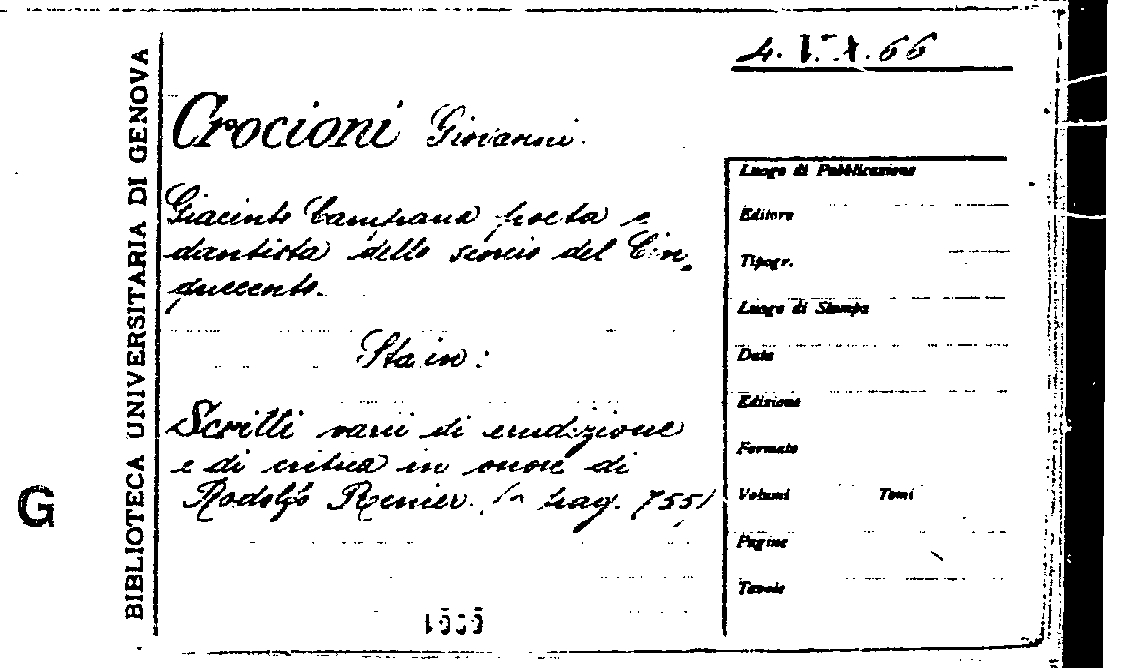 BIBLIOTECA UNIVERSITARIA DI GENOVA
G
Crocioni Giovanni.
Giacinto Campana poeta e
dantista dello scorcio del Cin-
quecento.
Sta in:
Scritti varii di erudizione
e di critica in onore di
Rodolfo Renier. (a pag. 755)
Luogo di Pubblicazione
Editore
Tipogr.
Luogo di Stampa
Data
Edizione
Formato
Volumi Tomi
Pagine
Tavole